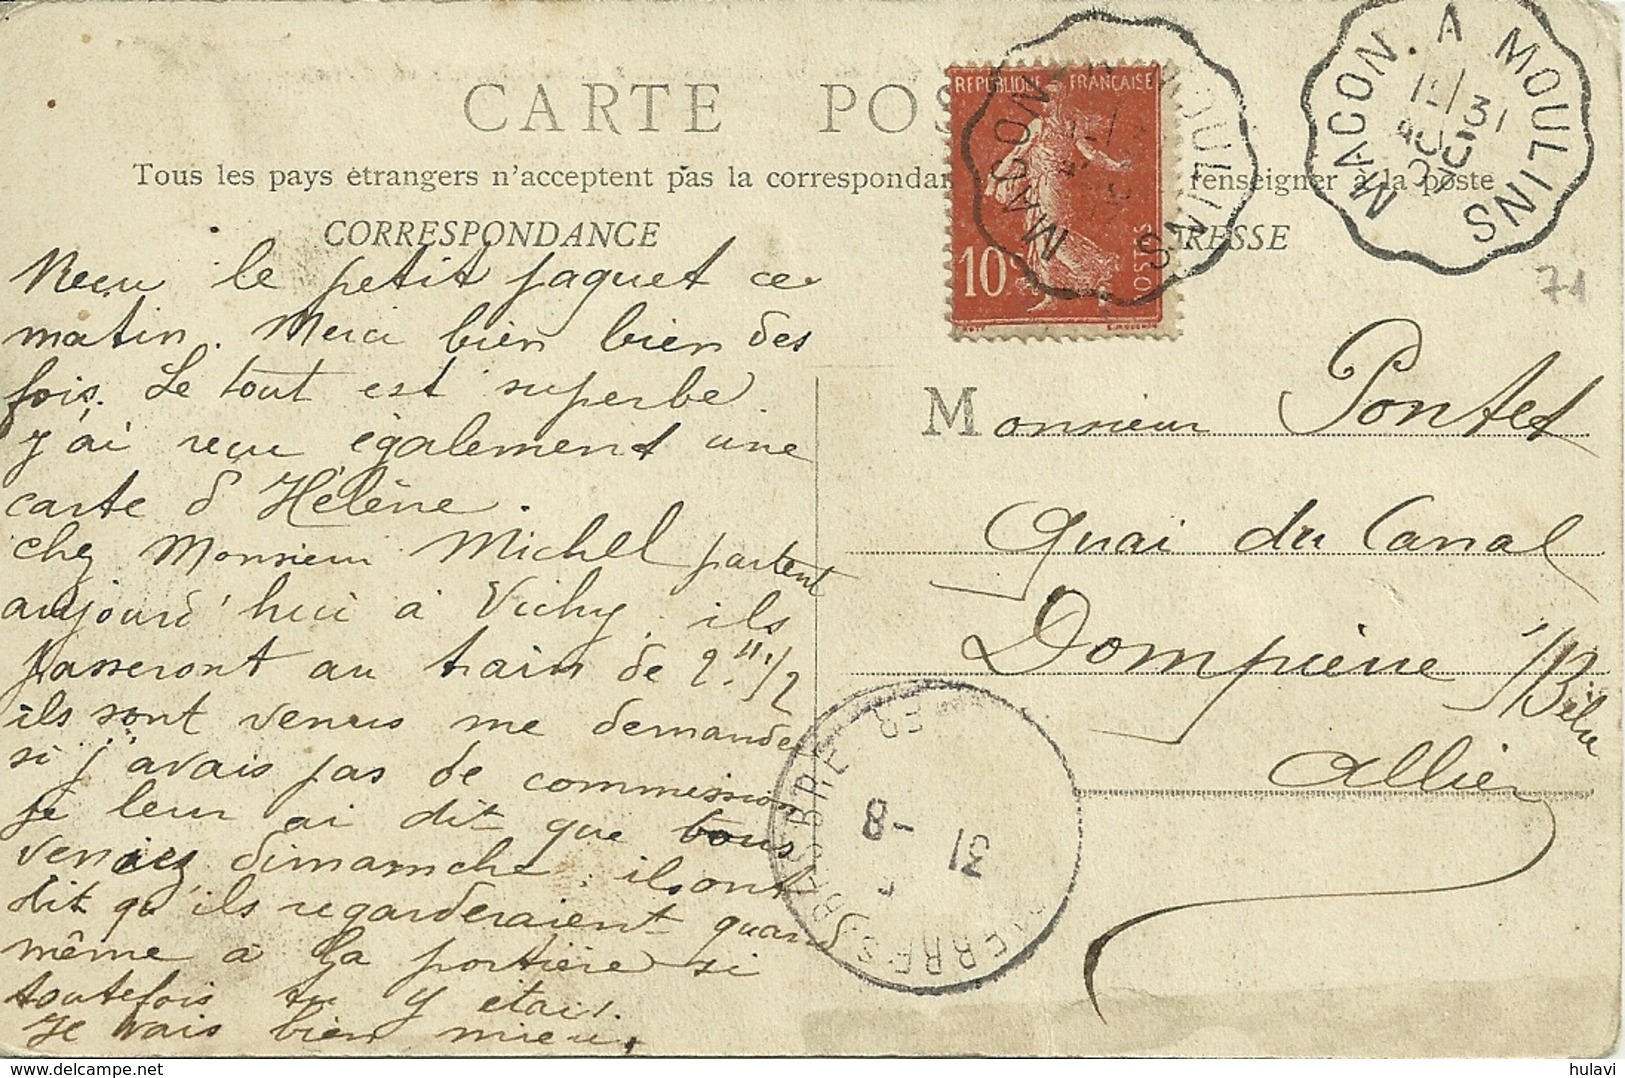 CARTE POS
Tous les pays étrangers n'acceptent pas la correspondan renseigner à la poste
CORRESPONDANCE
RESSE
REPUBLIQUE FRANÇAISE
10c
POSTES
MACON A MOULINS
MACON. A MOULINS
31
AOU
71
Recu le petit paquet ce
matin. Merci bien bien des
fois. Le tout est superbe.
J'ai recu également une
carte d'Hélène.
chez Monsieur Michel partent
aujourd'hui à Vichy. ils
passeront au train de 2H 1/2
ils sont venus me demander
si j'avais pas de commission
je leur ai dit que vous
veniez dimanche. ils ont
dit qu'ils regarderaient quand
même à la portière si
toutefois tu y étais.
Je vais bien mieux.
Monsieur Pontet
Quai du Canal
Dompierre s/Bèbre
Allier
31 -8
ERRE S. BESBRE
hulavi